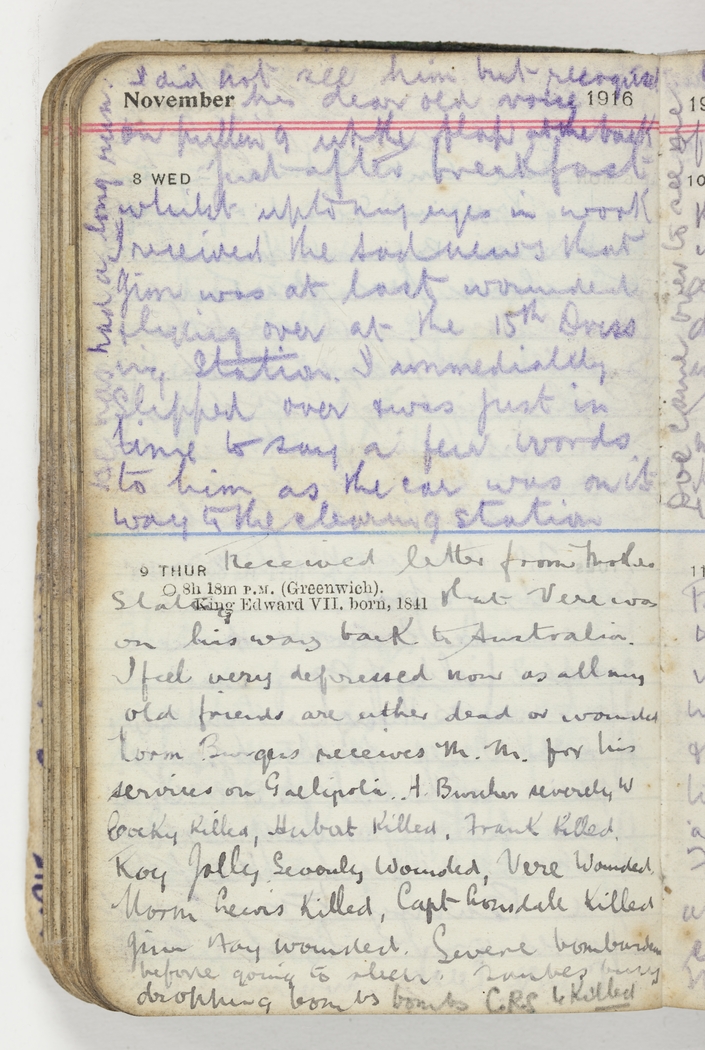 I did not see him but recognised
November his dear old voice 1916
on pulling up the flap at the back
8 WED Just after breakfast
whilst upto my eyes in work
I received the sad news that
Jim was at last wounded
& lying over at the 15th Dress
ing Station. I immediatly
slipped over & was just in
time to say a few words
to him as the car was on it
way to the clearing station
He has had a long run.
9 THUR Received letter from Mother
8h 18m P.M. (Greenwich).
King Edward VII. born, 1841
Stating that Vere was
on his way back to Australia.
I feel very depressed now as all my
old friends are either dead or wounded
Norm Burges receives M. M. for his
services on Gallipoli. A. Buncher severely W
Cocky Killed, Hubert Killed, Frank Killed.
Roy Jolly Severely Wounded, Vere Wounded
Norm Lewis Killed, Capt Lonsdale Killed
Jim Hay wounded. Severe bombardm
before going to sleep. Taubes busy
dropping bombs bombs C.R.S 4 Killed
came over to see me